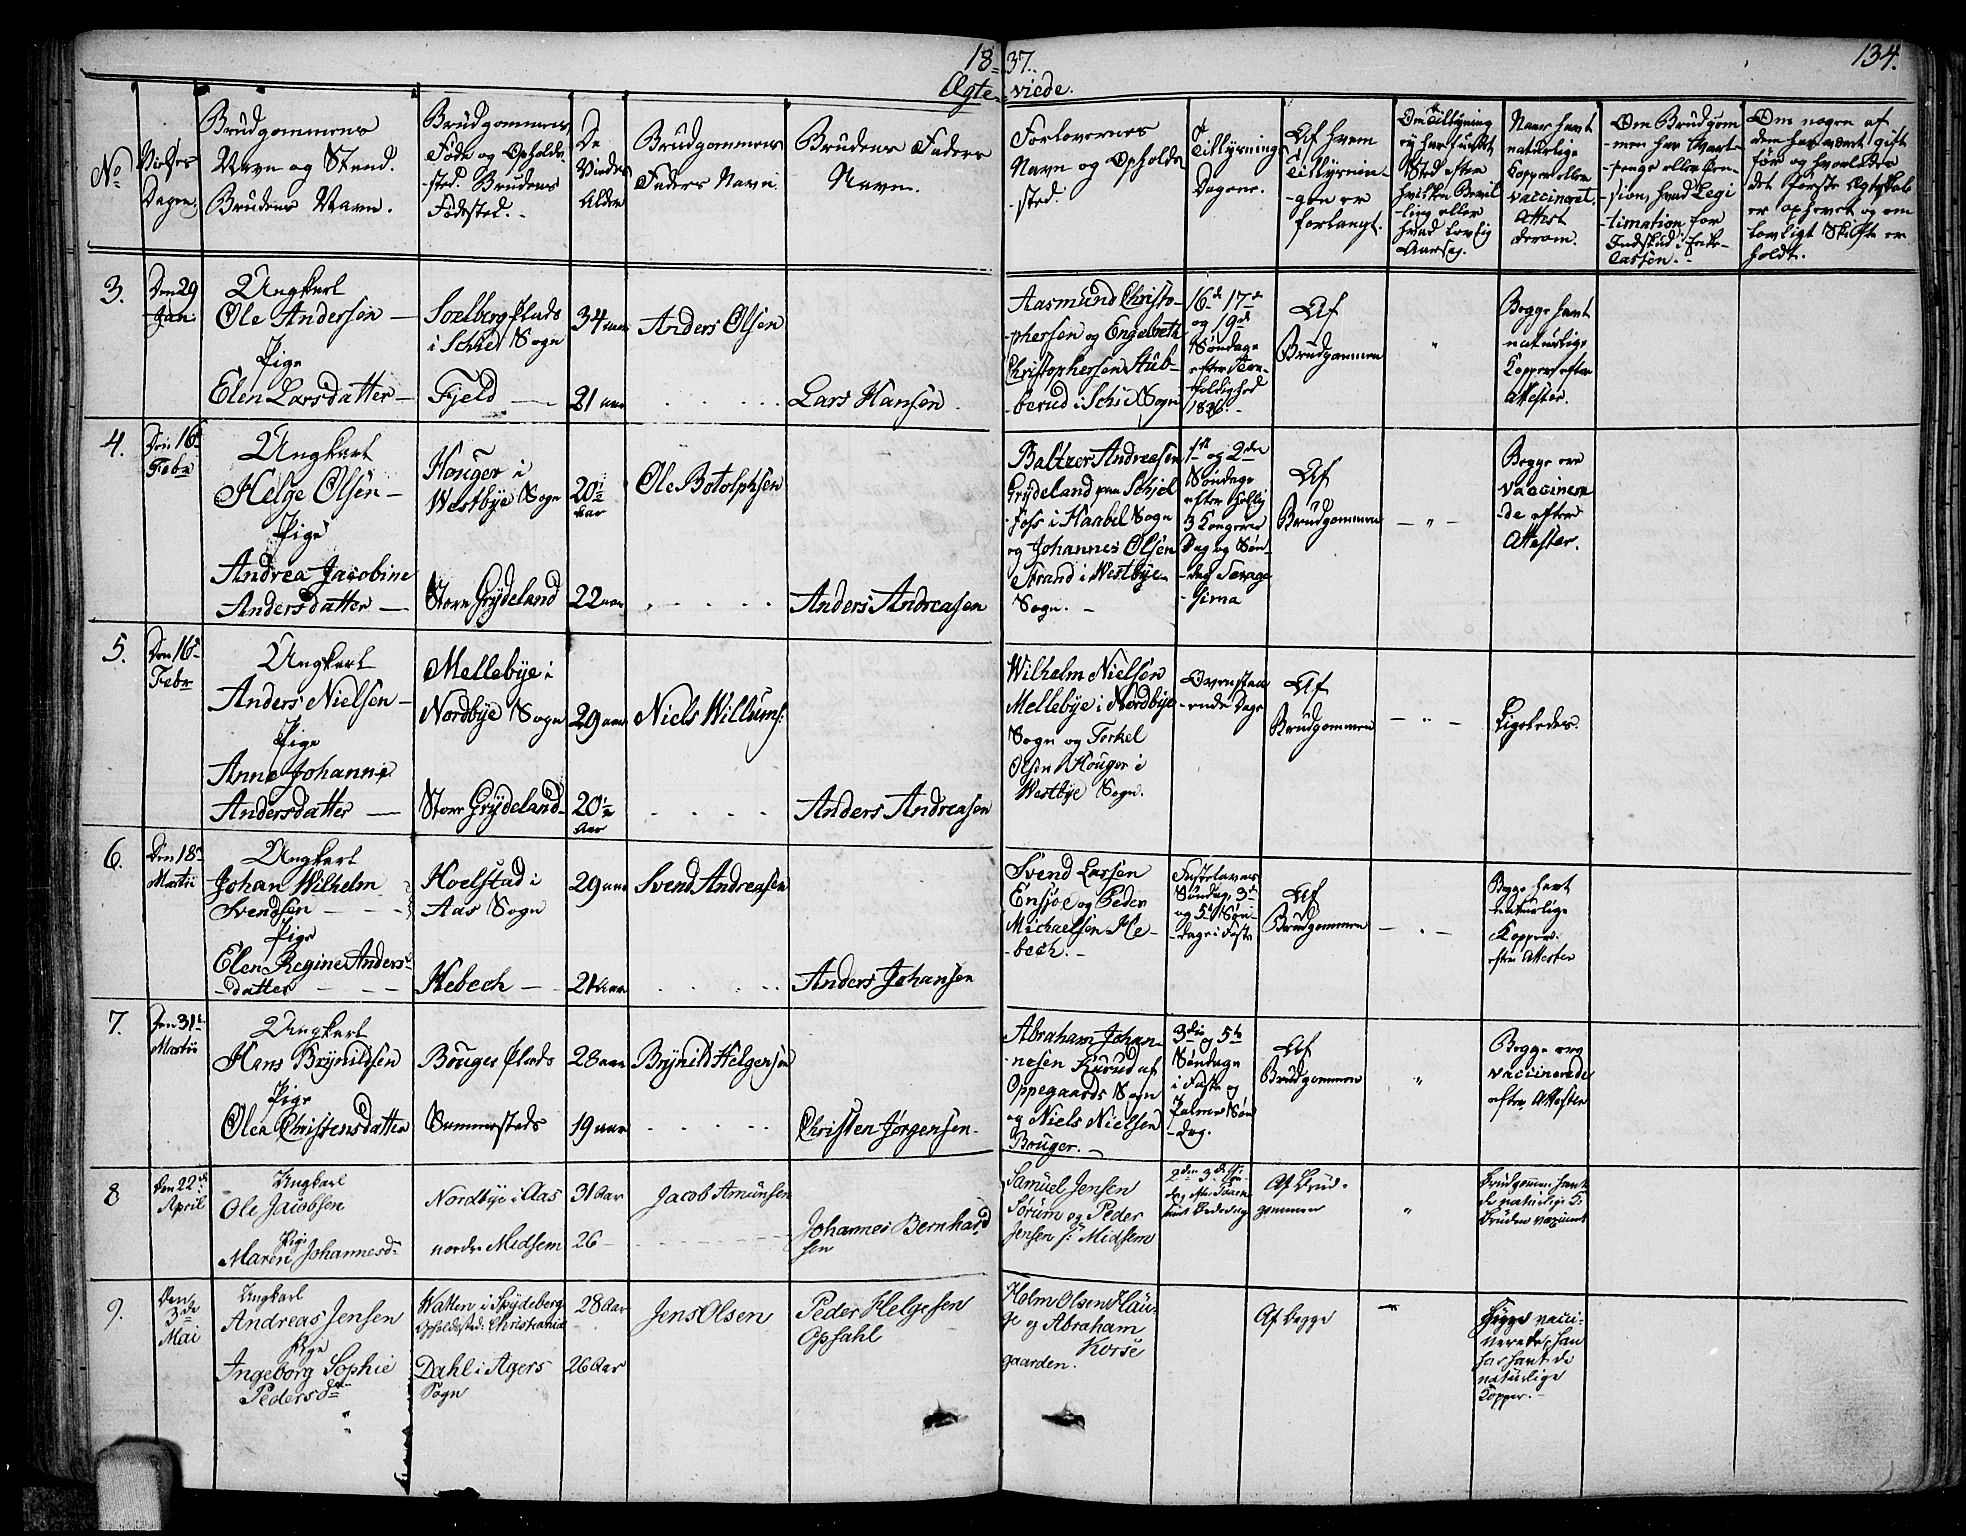 1837.
134.
Ægteviede.
No
Vielses Dagen
Brudgommens Navn og Stand. Brudens Navn.
Brudgommens Føde og Opholdssted. Brudens Fødested.
De Viedes Alder
Brudgommens Faders Navn.
Brudens Faders Navn.
Forlovernes Navn og Opholdssted.
Tillysnings Dagene.
Af hvem Tillysningen er forlangt.
Om Tillysning ey har fundet Sted efter hvilken Bevilling eller hvad lovlig Aarsag.
Naar havt naturlige Kopper eller vaccineret, Attest derom.
Om Brudgommen har Vartpenge eller Pension, hvad Legitimation for Indskud i Enke-Cassen.
Om nogen af dem har været gift før og hvorledes det første Ægteskab er ophevet og om lovligt Skifte er holdt.
3.
Den 29 Jan.
Ungkarl
Ole Andersen
Pige
Elen Larsdatter
Soelberg Plads
i Schie Sogn
Fjeld
34 aar
21 aar
Anders Olsen
Lars Hansen
Aasmund Christo-
phersen og Engelbreth
Christophersen Stub-
berud i Schi Sogn
16de 17de
og 19de
Søndage
efter Tre-
foldighed
1836.
Af
Brudgommen
"
Begge havt
naturlige
Kopper efter
Attester.
4.
Den 16de
Febr
Ungkarl
Helge Olsen
Pige
Andrea Jacobine
Andersdatter
Houger i
Westbye Sogn
Store Grydeland
20 1/2
Aar
22 aar
Ole Botolphsen
Anders Andreasen
Baltzer Andreasen
Grydeland paa Schjel-
fos i Haabel Sogn
og Johannes Olsen
Strand i Westbye
Sogn.
1ste og 2den
Søndage
efter Hellig
3 Konger
Dag og Søn-
dag Sexage-
sima
Af
Brudgommen
"
Begge ere
vaccinere-
de efter
Attester.
5.
Den 16de
Febr
Ungkarl
Anders Nielsen
Pige
Anne Johanne
Andersdatter
Mellebye i
Nordbye Sogn
Store Grydeland
29 aar
20 1/2
Aar
Niels Willums:
Anders Andreasen
Wilhelm Nielsen
Mellebye i Nordbye
Sogn og Torkel
Olsen Houger i
Westbye Sogn.
Ovenstaa-
ende Dage
Af
Brudgommen
"
Ligeledes.
6.
Den 18de
Martii
Ungkarl
Johan Wilhelm
Svendsen
Pige
Elen Regine Anders-
datter
Hoelstad i
Aas Sogn
Hebech
29 aar
21 Aar
Svend Andreasen
Anders Johansen
Svend Larsen
Ensjøe og Peder
Michaelsen He-
bech.
Fastelavns
Søndag, 3de
og 5te Søn-
dage i Faste
Af
Brudgommen
"
Begge havt
naturlige
Kopper
efter Attester
7.
Den 31te
Martii
Ungkarl
Hans Brynildsen
Pige
Olea Christensdatter
Bouger Plads
Sammersteds
28 aar
19 aar
Brynild Helgersen
Christen Jørgensen
Abraham Johan-
nesen Kurud af
Oppegaards Sogn
og Niels Nielsen
Bruger.
3die og 5te
Søndage
i Faste og
Palme Søn-
dag.
Af
Brudgommen
"
Begge ere
vaccinerede
efter Attester
8
Den 22de
April
Ungkarl
Ole Jacobsen
Pige
Maren Johannesd:
Nordbye i Aas
nordre Midsem
31 Aar
26
Jacob Amundsen
Johannes Bernhard
sen
Samuel Jensen
Sørum og Peder
Jensen s: Midsem
Af Brud-
gommen
"
Brudgommen havt
de naturlige K:
Bruden vaccinert
9.
Den
3de
Mai
Ungkarl
Andreas Jensen
Pige
Ingeborg Sophie
Pedersd:
Watten i Spydeberg
Opholdssted: Christiania
Dahl i Agers
Sogn
28 Aar
26 Aar
Jens Olsen
Peder Helgesen
Opsahl
Holm Olsen Hau-
ge og Abraham
Korse
gaarden.
Af Begge
Begge vacci-
nerede, han
har havt de
naturlige
Kopper.